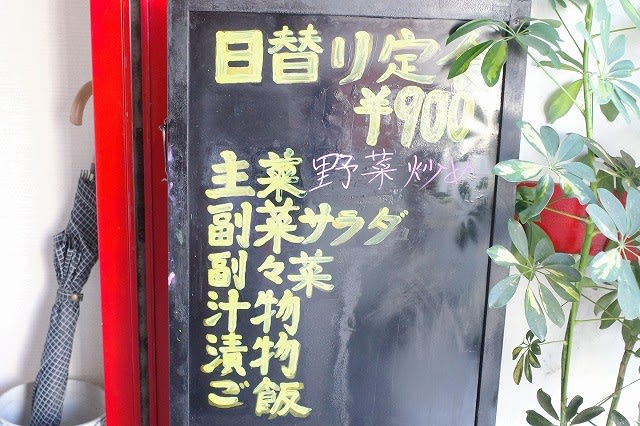 日替り定食
¥900
主菜 野菜炒め
副菜サラダ
副々菜
汁物
漬物
ご飯